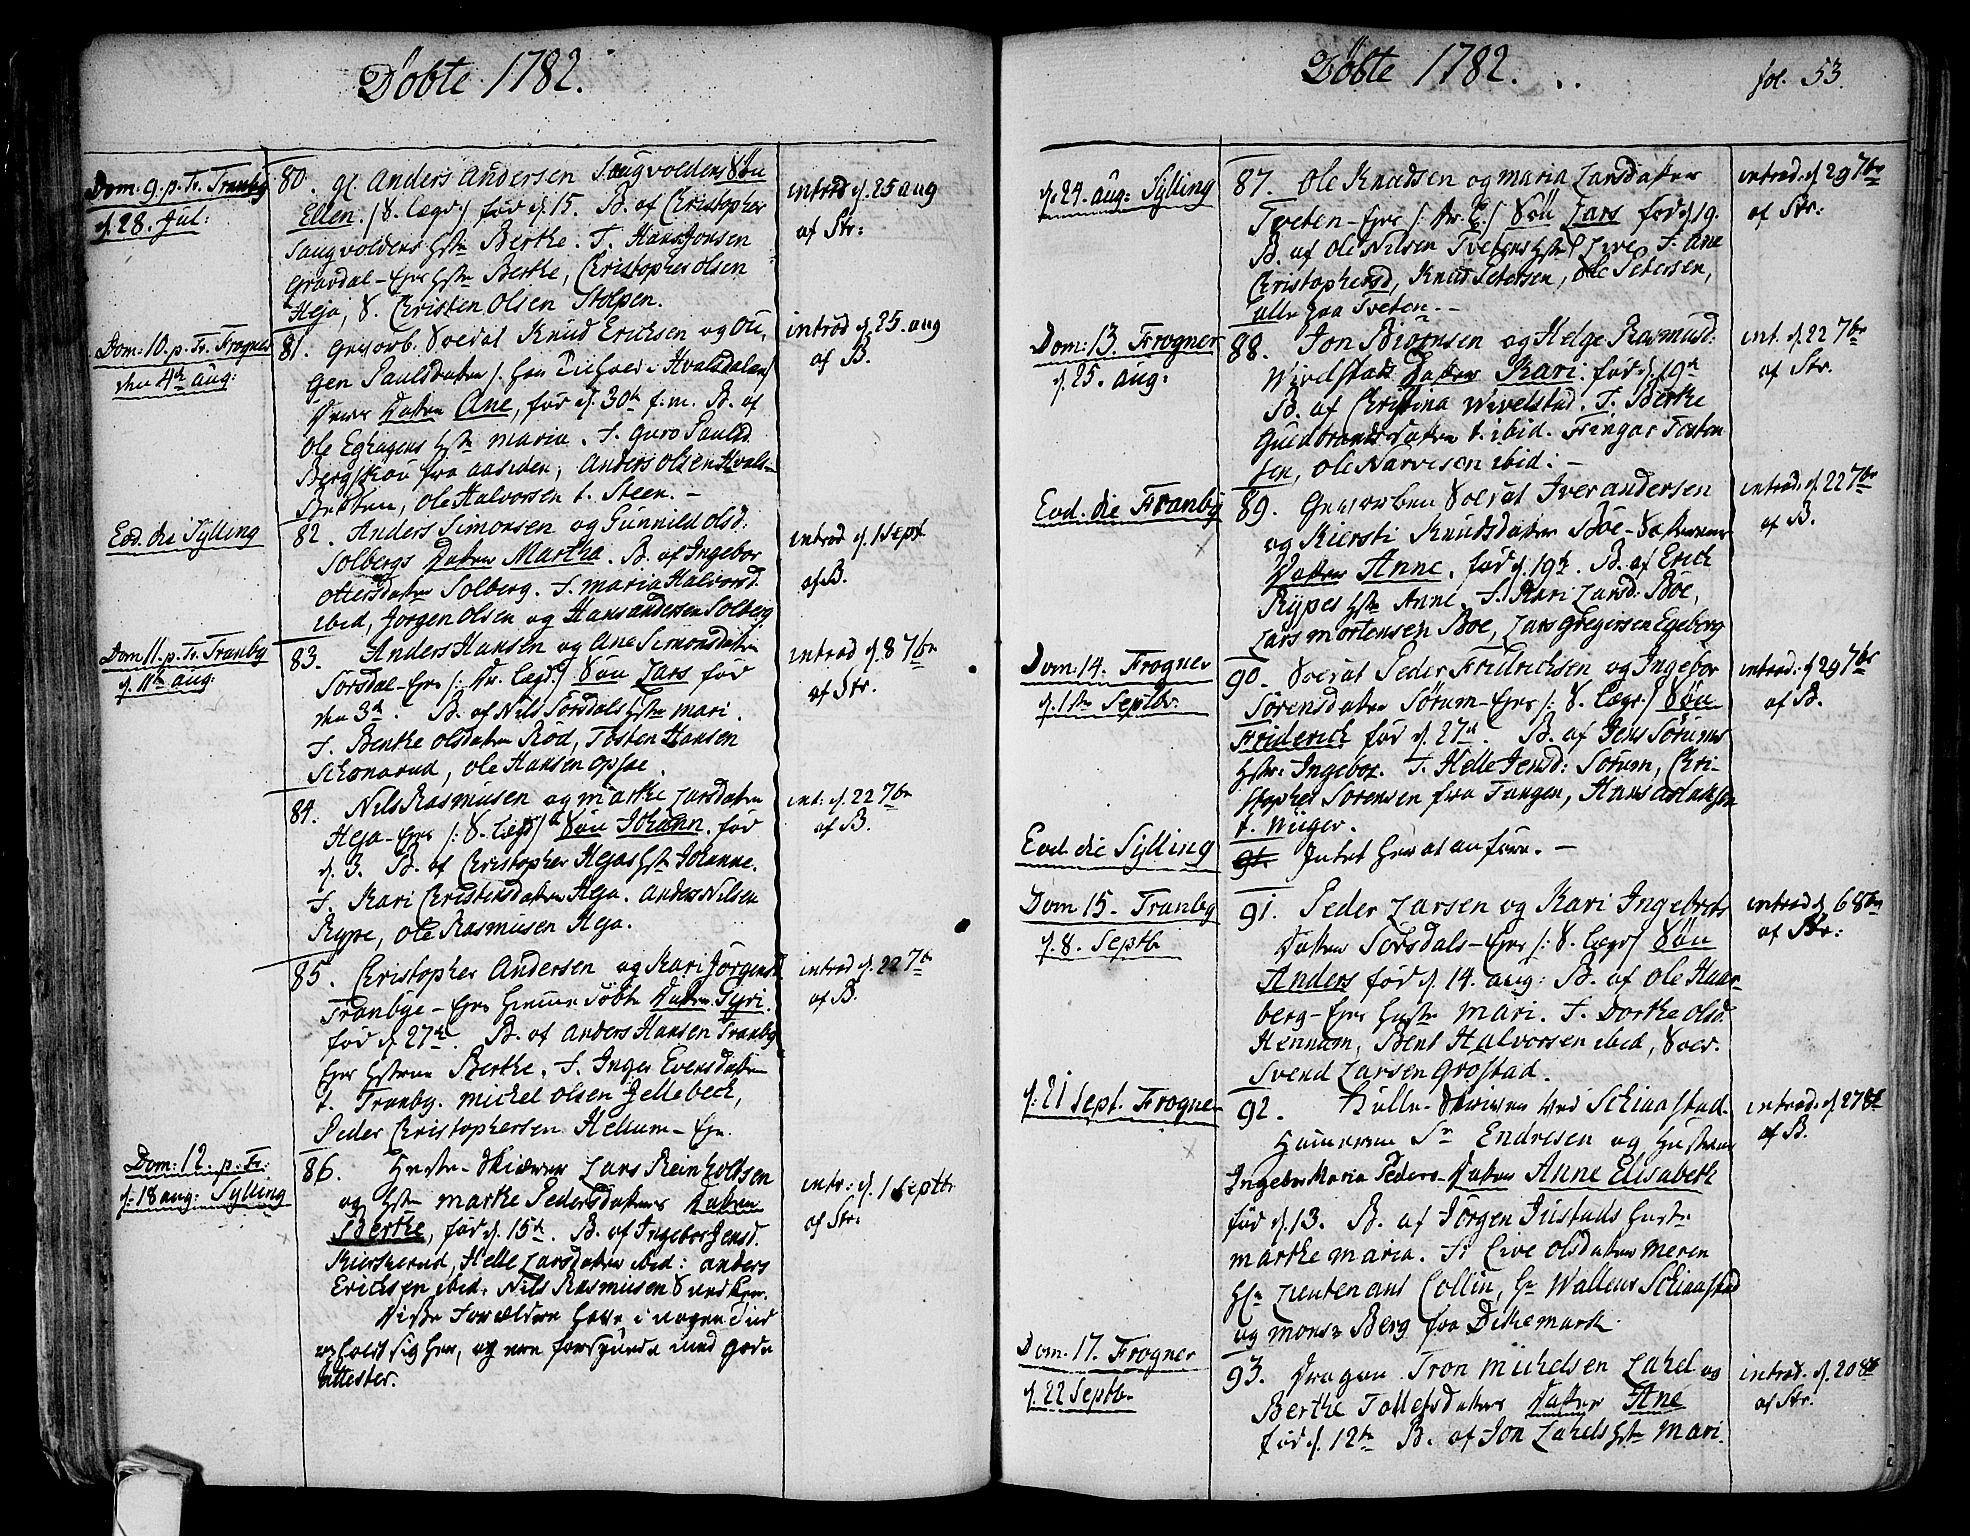 Döbte 1782.
Dom. 9. p. Tr. Tranby
d. 28. Jul:
80. gl. Anders Andersen Saugvoldens Sön
Ellen. /: S. lægd :/ föd d. 15. B. af Christopher
Saugvoldens Hstr Berthe. F. Hans Jonsen
Gravdal-Ejer Hstr Berthe, Christopher Olsen
Heja, S. Christen Olsen Stolpen.
introd d. 25 aug
af Str:
Dom. 10. p. Tr. Frogner
den 4de aug:
81. Gevorb. Soldat Knud Erichsen og Ou-
gen Paulsdatter
deres Datter Ane, föd d. 30te f. m. B. af
Ole Eghagens Hstr Maria. F. Guro Paulsd.
Bergskou fra aasiden, Anders Olsen Hvals-
Ole Halvorsen t. Steen. –
introd d. 25. aug
af B.
Eod. die Sylling
82. Anders Simonsen og Gunnild Olsd:
Solbergs Datter Martha. B. af Ingebor
Ottersdatter Solberg. F. Maria Halvorsd.
ibid, Jörgen Olsen og Hans Andersen Solberg
introd d. 1 Sept
af B.
Dom. 11. p. Tr. Tranby
d. 11te aug:
83. Anders Hansen og Ane Simonsdatter
Sorsdal-Ejer /: Dr. lægd :/ Sön Lars föd
den 3de. B. af Nils Sorsdals Hstr Mari.
F. Benthe Olsdatter Rod, Tosten Hansen
Schonerud, Ole Hansen Opsae.
introd d. 8 7br
af Str.
84. Nils Rasmusen og Marthe Larsdatter
Heja-Ejer /: S. lægd :/ Sön Johann. föd
d. 3. B. af Christopher Hejas Hstr Johanne.
F. Kari Christensdatter Heja. Anders Nilsen
Rype, Ole Rasmusen Heja.
int: d. 22 7br
af B.
85. Christopher Andersen og Kari Jörgensd
Tranbye-Ejer hjemme döbte Datter Gyri.
föd d. 27de. B. af Anders Hansen Tranby
Ejer Hstrue Berthe. F. Inger Evensdatter
t. Tranby. Michel Olsen Gellebech,
Peder Christophersen Hellum-Ejer.
introd d. 22 7br
af B.
Dom: 12. p. Tr.
d. 18 aug: Sylling
86. Heste-Skiærer Lars Reinholdsen
og Hstr Marthe Pedersdatters Datter
Berthe, föd d. 15de. B. af Ingebor Jensd.
Kierkerud, Helle Larsdatter ibid: Anders
Erichsen ibid. Nils Rasmusen
Disse Forældre have i nogen Tid
opholdt sig her, og ere forsynede med gode
attester.
intr: d. 1 Septb
af Str.
Döbte 1782.
fol. 53.
d. 24. aug: Sylling
87. Ole Knudsen og Maria Larsdatter
Tveten-Ejer Sön Lars föd d. 19.
B. af Ole Nilsen Tvetens Hstr Live. F. Ane
Christophersd, Knud Petersen, Ole Petersen,
alle fra Tveten. –
introd. d. 29 7br
af Str:
Dom: 13. Frogner
d. 25. aug:
88. Jon Biörnsen og Helge Rasmusd:
Wivelstad Datter Kari. föd d. 19de
B. af Christina Wivelstad. F. Berthe
Gudbrandsdatter t. ibid. Fringar Tosten
sen, Ole Narvesen ibid: –
int. d. 22 7br
af Str.
Eod. die Tranby
89. Gevorben Soldat Iver Andersen
og Kiersti Knudsdatter Böe
Datter Anne, föd d. 19de. B. af Erich
Rypes Hstr Anne. F. Kari Larsd: Böe,
Lars Mortensen Böe, Lars Gregersen Egeberg
introd. d. 22 7br
af B.
Dom: 14. Frogner
d. 1ste Septbr.
90. Soldat Peder Fridrichsen og Ingebor
Sörensdatter Sörum-Ejer /: S. lægd :/ Sön
Friderich föd d. 27de. B. af Jens Sörums
Hstr: Ingebor. F. Helle Jensd: Sörum, Chri-
stopher Sörensen fra Tangen, Hans Aslaksen
t. Wiiger.
introd: d. 29 7br
af B.
Eod. die Sylling
91. Intet her at anföre. –
Dom 15. Tranby
d. 8. Septb
91. Peder Larsen og Kari Ingebrets
Datter Sorsdals-Ejer /: S. lægd :/ Sön
Anders föd d. 14. aug: B. af Ole Haar-
berg-Ejer Hustr Mari. F. Dorthe Olsd.
Hennum, Bent Halvorsen ibid, Sold.
Svend Larsen Grostad.
introd d. 6 8br
af Str:
d: 21 Sept. Frogner
92. Bulle-Skriver ved Schiaastad
Sr Endresen og Hustrue
Ingebor Maria Peders-Datter Anne Elisabeth
föd d. 13. B. af Jörgen Justads Hustr
Marthe Maria. F. Live Olsdatter Meren
Hr Lieutenant Collin, Hr Wallens Schiaastad
og Monsr Berg fra Dikemark.
introd. d. 27 8br
af B.
Dom. 17. Frogner
d. 22 Septb.
93. Dragon Tron Michelsen Lahel og
Berthe Tollefsdatters Datter Ane
föd d. 12te B. af Jon Lahels Hstr Mari.
introd. d. 20 8br
af Str.